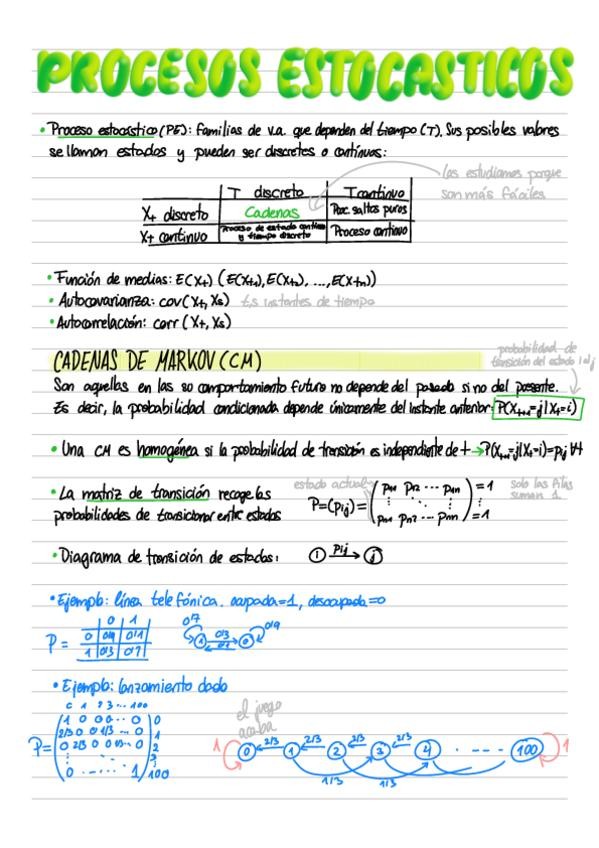 PROCESOS ESTOCASTICOS
• Proceso estocástico (PE): familias de v.a. que dependen del tiempo (T). Sus posibles valores
se llaman estados y pueden ser discretos o contínuos:
los estudiamos porque
son más fáciles
T discreto | T continuo
Xt discreto | Cadenas | Proc. saltos puros
Xt continuo | Proceso de estado continuo y tiempo discreto | Proceso continuo
• Función de medias: E(Xt) (E(Xt1), E(Xt2), ..., E(Xtn))
• Autocovarianza: cov(Xt, Xs) t,s instantes de tiempo
• Autocorrelación: corr(Xt, Xs)
probabilidad de
transición del estado i al j
CADENAS DE MARKOV (CM)
Son aquellas en las su comportamiento futuro no depende del pasado si no del presente.
Es decir, la probabilidad condicionada depende únicamente del instante anterior: P(Xt+1=j|Xt=i)
• Una CM es homogénea si la probabilidad de transición es independiente de t → P(Xt+1=j|Xt=i)=pij ∀t
• La matriz de transición recoge las
probabilidades de transicionar entre estados
estado actual
P=(pij)=
p11 p12 ... p1n =1
pn1 pn2 ... pnn =1
solo las filas
suman 1
• Diagrama de transición de estados: i pij → j
• Ejemplo: línea telefónica. ocupada=1, desocupada=0
P =
0 1
0 0'9 0'1
1 0'3 0'7
0'7 1 0'3 0'1 0 0'9
• Ejemplo: lanzamiento dado
0 1 2 3 ... 100
P=
1 0 0 0 ... 0 0
2/3 0 0 1/3 ... 0 1
0 2/3 0 0 1/3 ... 0 2
0 ... 1 100
el juego
acaba
1 0 2/3 1 2/3 2 2/3 3 2/3 4 ... 100 1
1/3 1/3